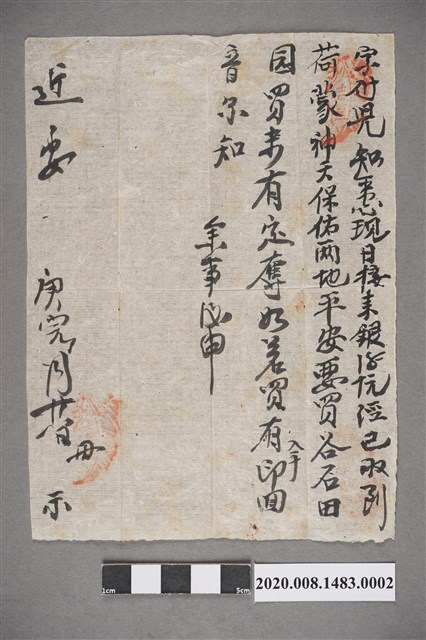 字付兒知悉現日接来銀信阮經已收到
荷蒙神天保佑兩地平安要買谷石田
园買未有定奪如若買有入手印回
音尔知
余事後申
近安
庚 月廿 日 毋 示
1cm
5cm
2020.008.1483.0002